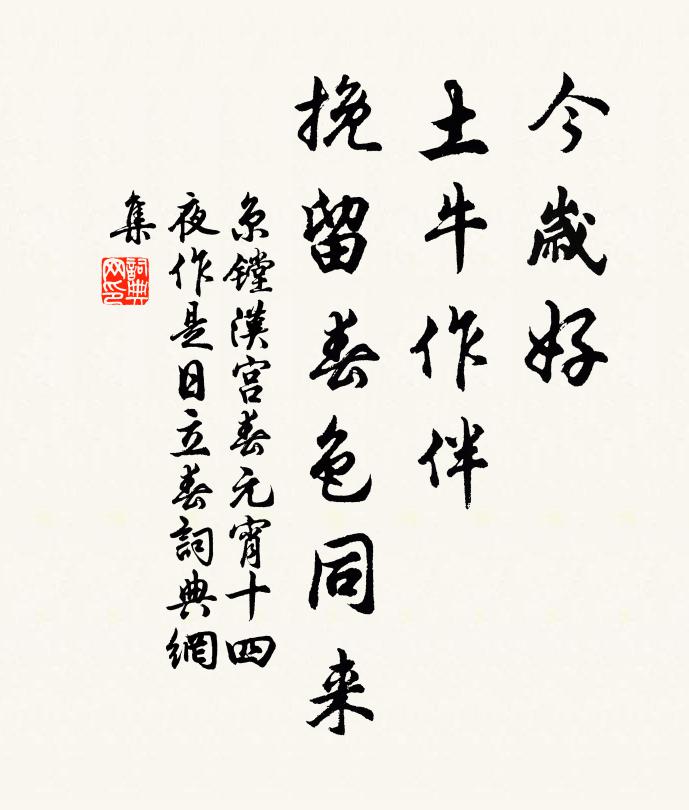 今歲好
土牛作伴
挽留春色同来
京鏜漢宮春元宵十四
夜作是日立春詞典網
集
詞典
网印